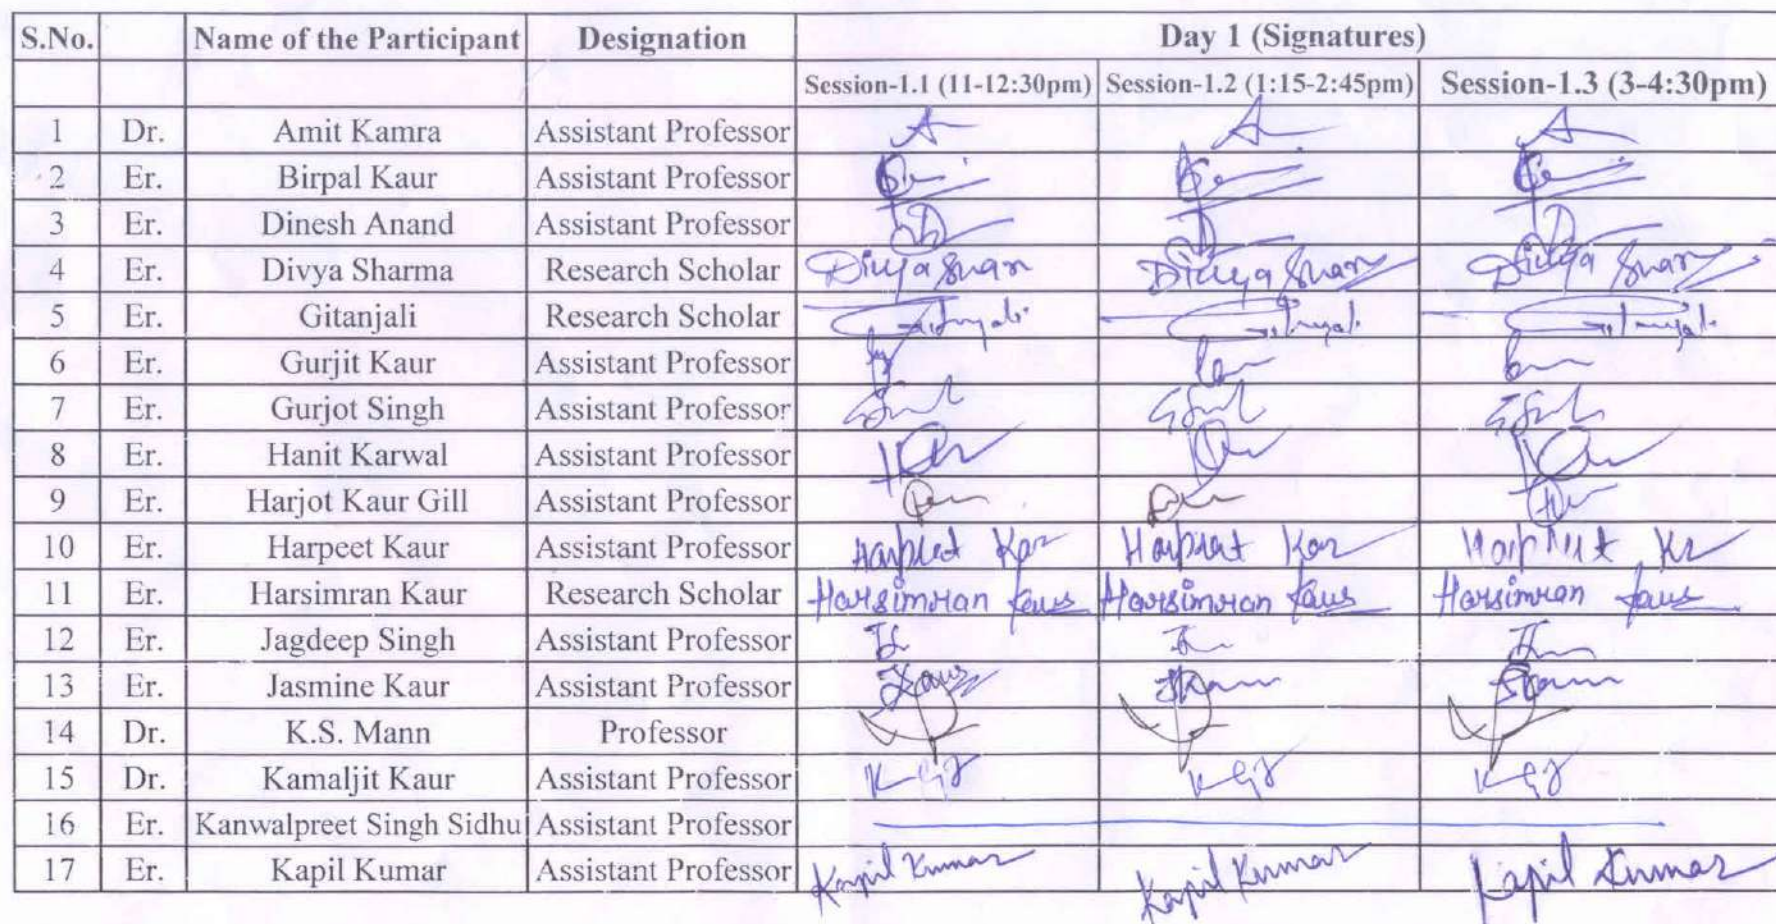 S.No. Name of the Participant Designation Day 1 (Signatures)
Session-1.1 (11-12:30pm) Session-1.2 (1:15-2:45pm) Session-1.3 (3-4:30pm)
1 Dr. Amit Kamra Assistant Professor
2 Er. Birpal Kaur Assistant Professor
3 Er. Dinesh Anand Assistant Professor
4 Er. Divya Sharma Research Scholar Divya Divya Divya
5 Er. Gitanjali Research Scholar
6 Er. Gurjit Kaur Assistant Professor
7 Er. Gurjot Singh Assistant Professor
8 Er. Hanit Karwal Assistant Professor
9 Er. Harjot Kaur Gill Assistant Professor
10 Er. Harpeet Kaur Assistant Professor Harpreet Harpreet Harpreet
11 Er. Harsimran Kaur Research Scholar Harsimran Kaur Harsimran Kaur Harsimran Kaur
12 Er. Jagdeep Singh Assistant Professor
13 Er. Jasmine Kaur Assistant Professor
14 Dr. K.S. Mann Professor
15 Dr. Kamaljit Kaur Assistant Professor
16 Er. Kanwalpreet Singh Sidhu Assistant Professor
17 Er. Kapil Kumar Assistant Professor Kapil Kumar Kapil Kumar Kapil Kumar